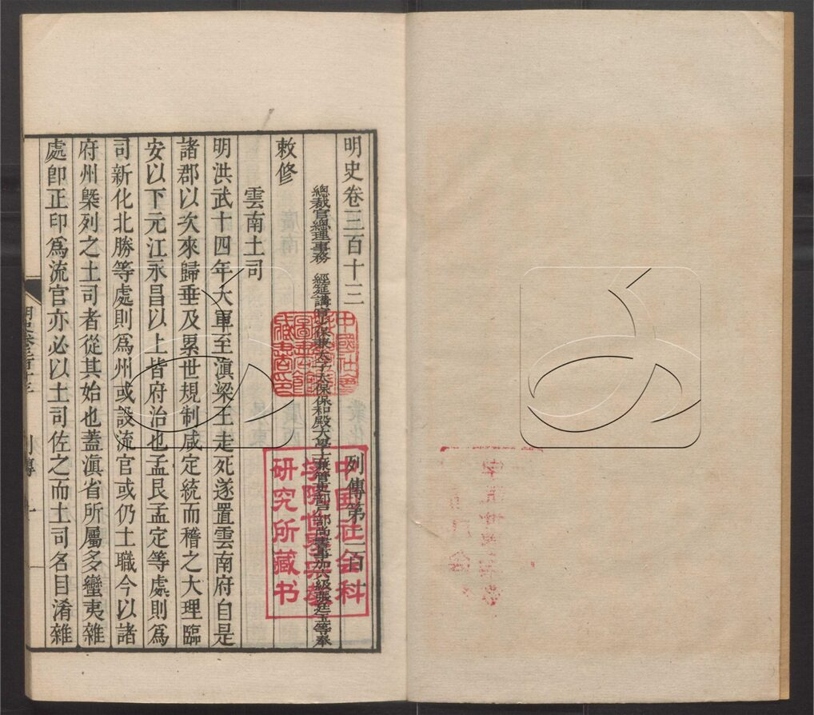 明史卷三百十三 列傳第二百一
總裁官總理事務 經筵講官少保兼太子太保保和殿大學士兼管吏部戶部尚書事加六級張廷玉等奉
敕修
雲南土司
明洪武十四年大軍至滇梁王走死遂置雲南府自是
諸郡以次來歸垂及累世規制咸定統而稽之大理臨
安以下元江永昌以上皆府治也孟艮孟定等處則爲
司新化北勝等處則爲州或設流官或仍土職今以諸
府州槩列之土司者從其始也蓋滇省所屬多蠻夷雜
處卽正印爲流官亦必以土司佐之而土司名目淆雜
中國社會科
學院世界歷
研究所藏书